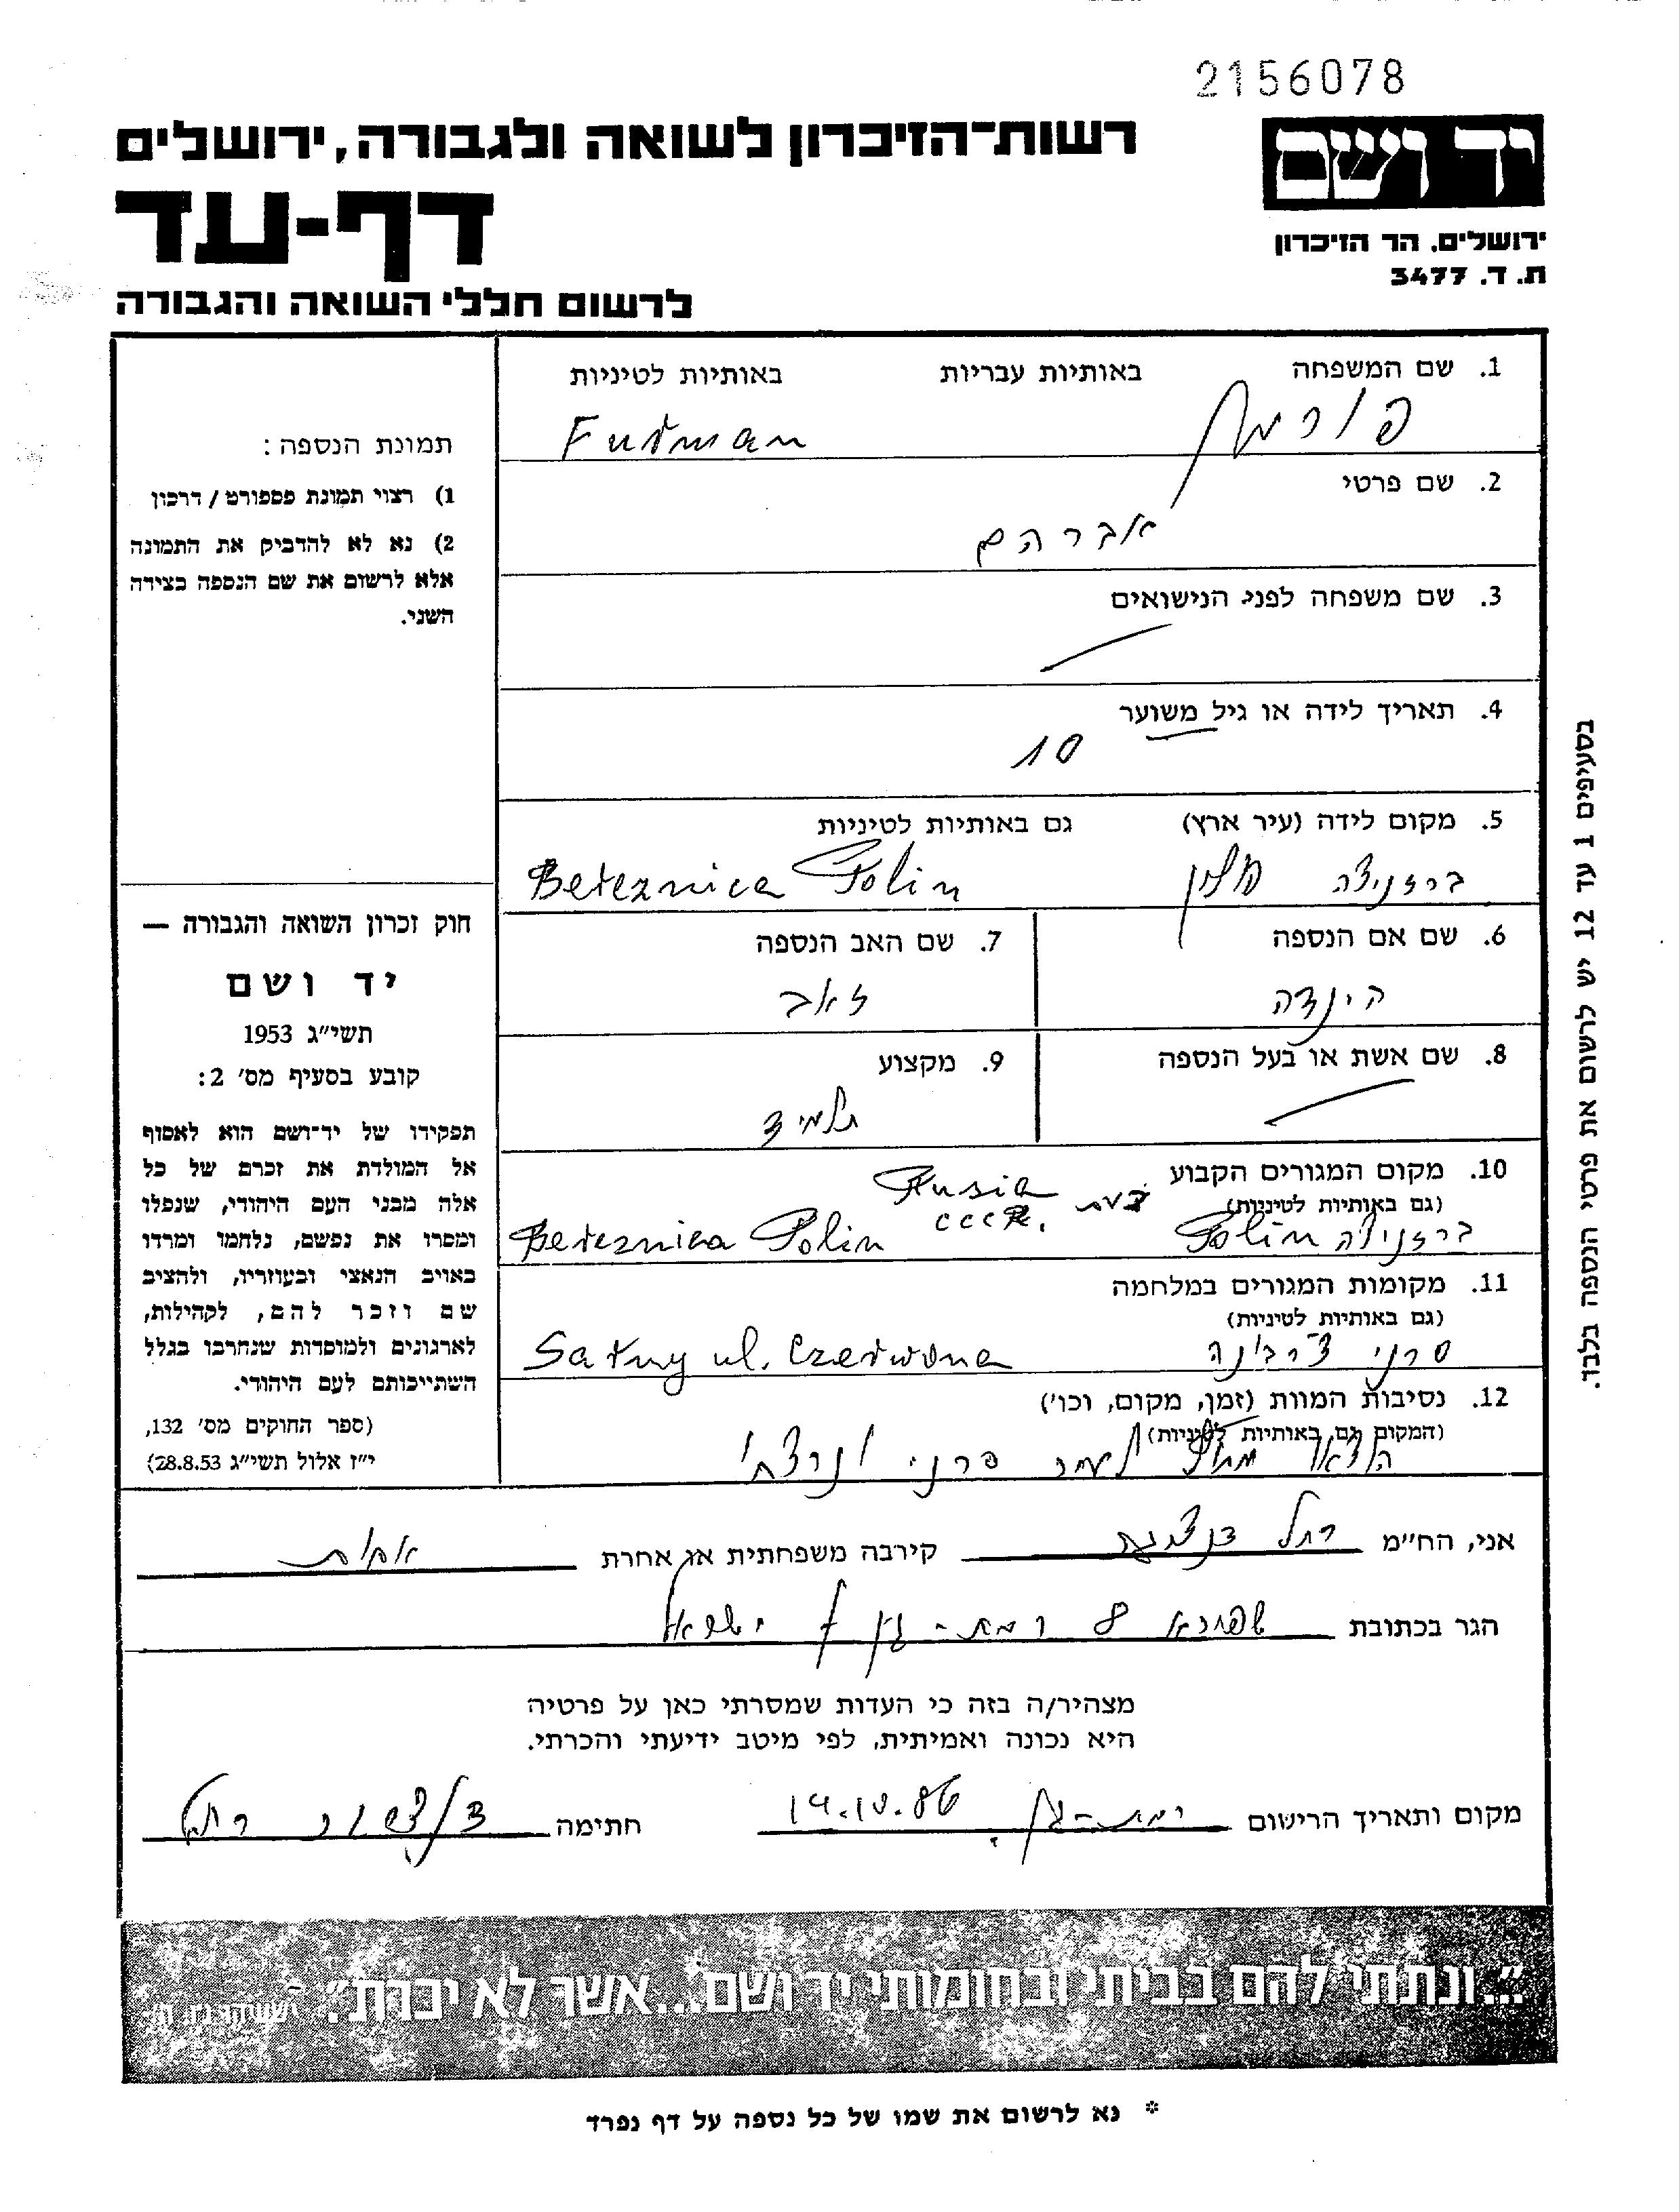 2156078
רשות־הזיכרון לשואה ולגבורה, ירושלים
יד ושם
דף-עד
ירושלים, הר הזיכרון
ת. ד. 3477
לרשום חללי השואה והגבורה
1. שם המשפחה באותיות עבריות באותיות לטיניות
פורמן Furman
2. שם פרטי
אברהם
3. שם משפחה לפני הנישואים
4. תאריך לידה או גיל משוער
10
5. מקום לידה (עיר ארץ) גם באותיות לטיניות
ברזניצה פולין Bereznica Polin
6. שם אם הנספה
הינדה
7. שם האב הנספה
זאב
8. שם אשת או בעל הנספה
9. מקצוע
תלמיד
10. מקום המגורים הקבוע
(גם באותיות לטיניות)
Rusia
CCCR.
ברזניצה Polin Bereznica Polin
11. מקומות המגורים במלחמה
(גם באותיות לטיניות)
סרני צ'רבונה Sarny ul. Czerwona
12. נסיבות המוות (זמן, מקום, וכו')
(המקום גם באותיות לטיניות)
הוצאו מחוץ לעיר סרני ונרצחו
תמונת הנספה:
1) רצוי תמונת פספורט/דרכון
2) נא לא להדביק את התמונה
אלא לרשום את שם הנספה בצידה
השני.
חוק זכרון השואה והגבורה —
יד ושם
תשי״ג 1953
קובע בסעיף מס׳ 2:
תפקידו של יד־ושם הוא לאסוף
אל המולדת את זכרם של כל
אלה מבני העם היהודי, שנפלו
ומסרו את נפשם, נלחמו ומרדו
באויב הנאצי ובעוזריו, ולהציב
שם וזכר להם, לקהילות,
לארגונים ולמוסדות שנחרבו בגלל
השתייכותם לעם היהודי.
(ספר החוקים מס׳ 132,
י״ז אלול תשי״ג 28.8.53)
בסעיפים 1 עד 12 יש לרשום את פרטי הנספה בלבד.
אני, הח״מ רחל קירבה משפחתית או אחרת אחות
הגר בכתובת 8 רמת-גן ישראל
מצהיר/ה בזה כי העדות שמסרתי כאן על פרטיה
היא נכונה ואמיתית, לפי מיטב ידיעתי והכרתי.
מקום ותאריך הרישום רמת-גן. 14.10.86 חתימה רחל
״...ונתתי להם בביתי ובחומותי יד ושם...אשר לא יכרת״. ישעיהו נו, ה׳
* נא לרשום את שמו של כל נספה על דף נפרד